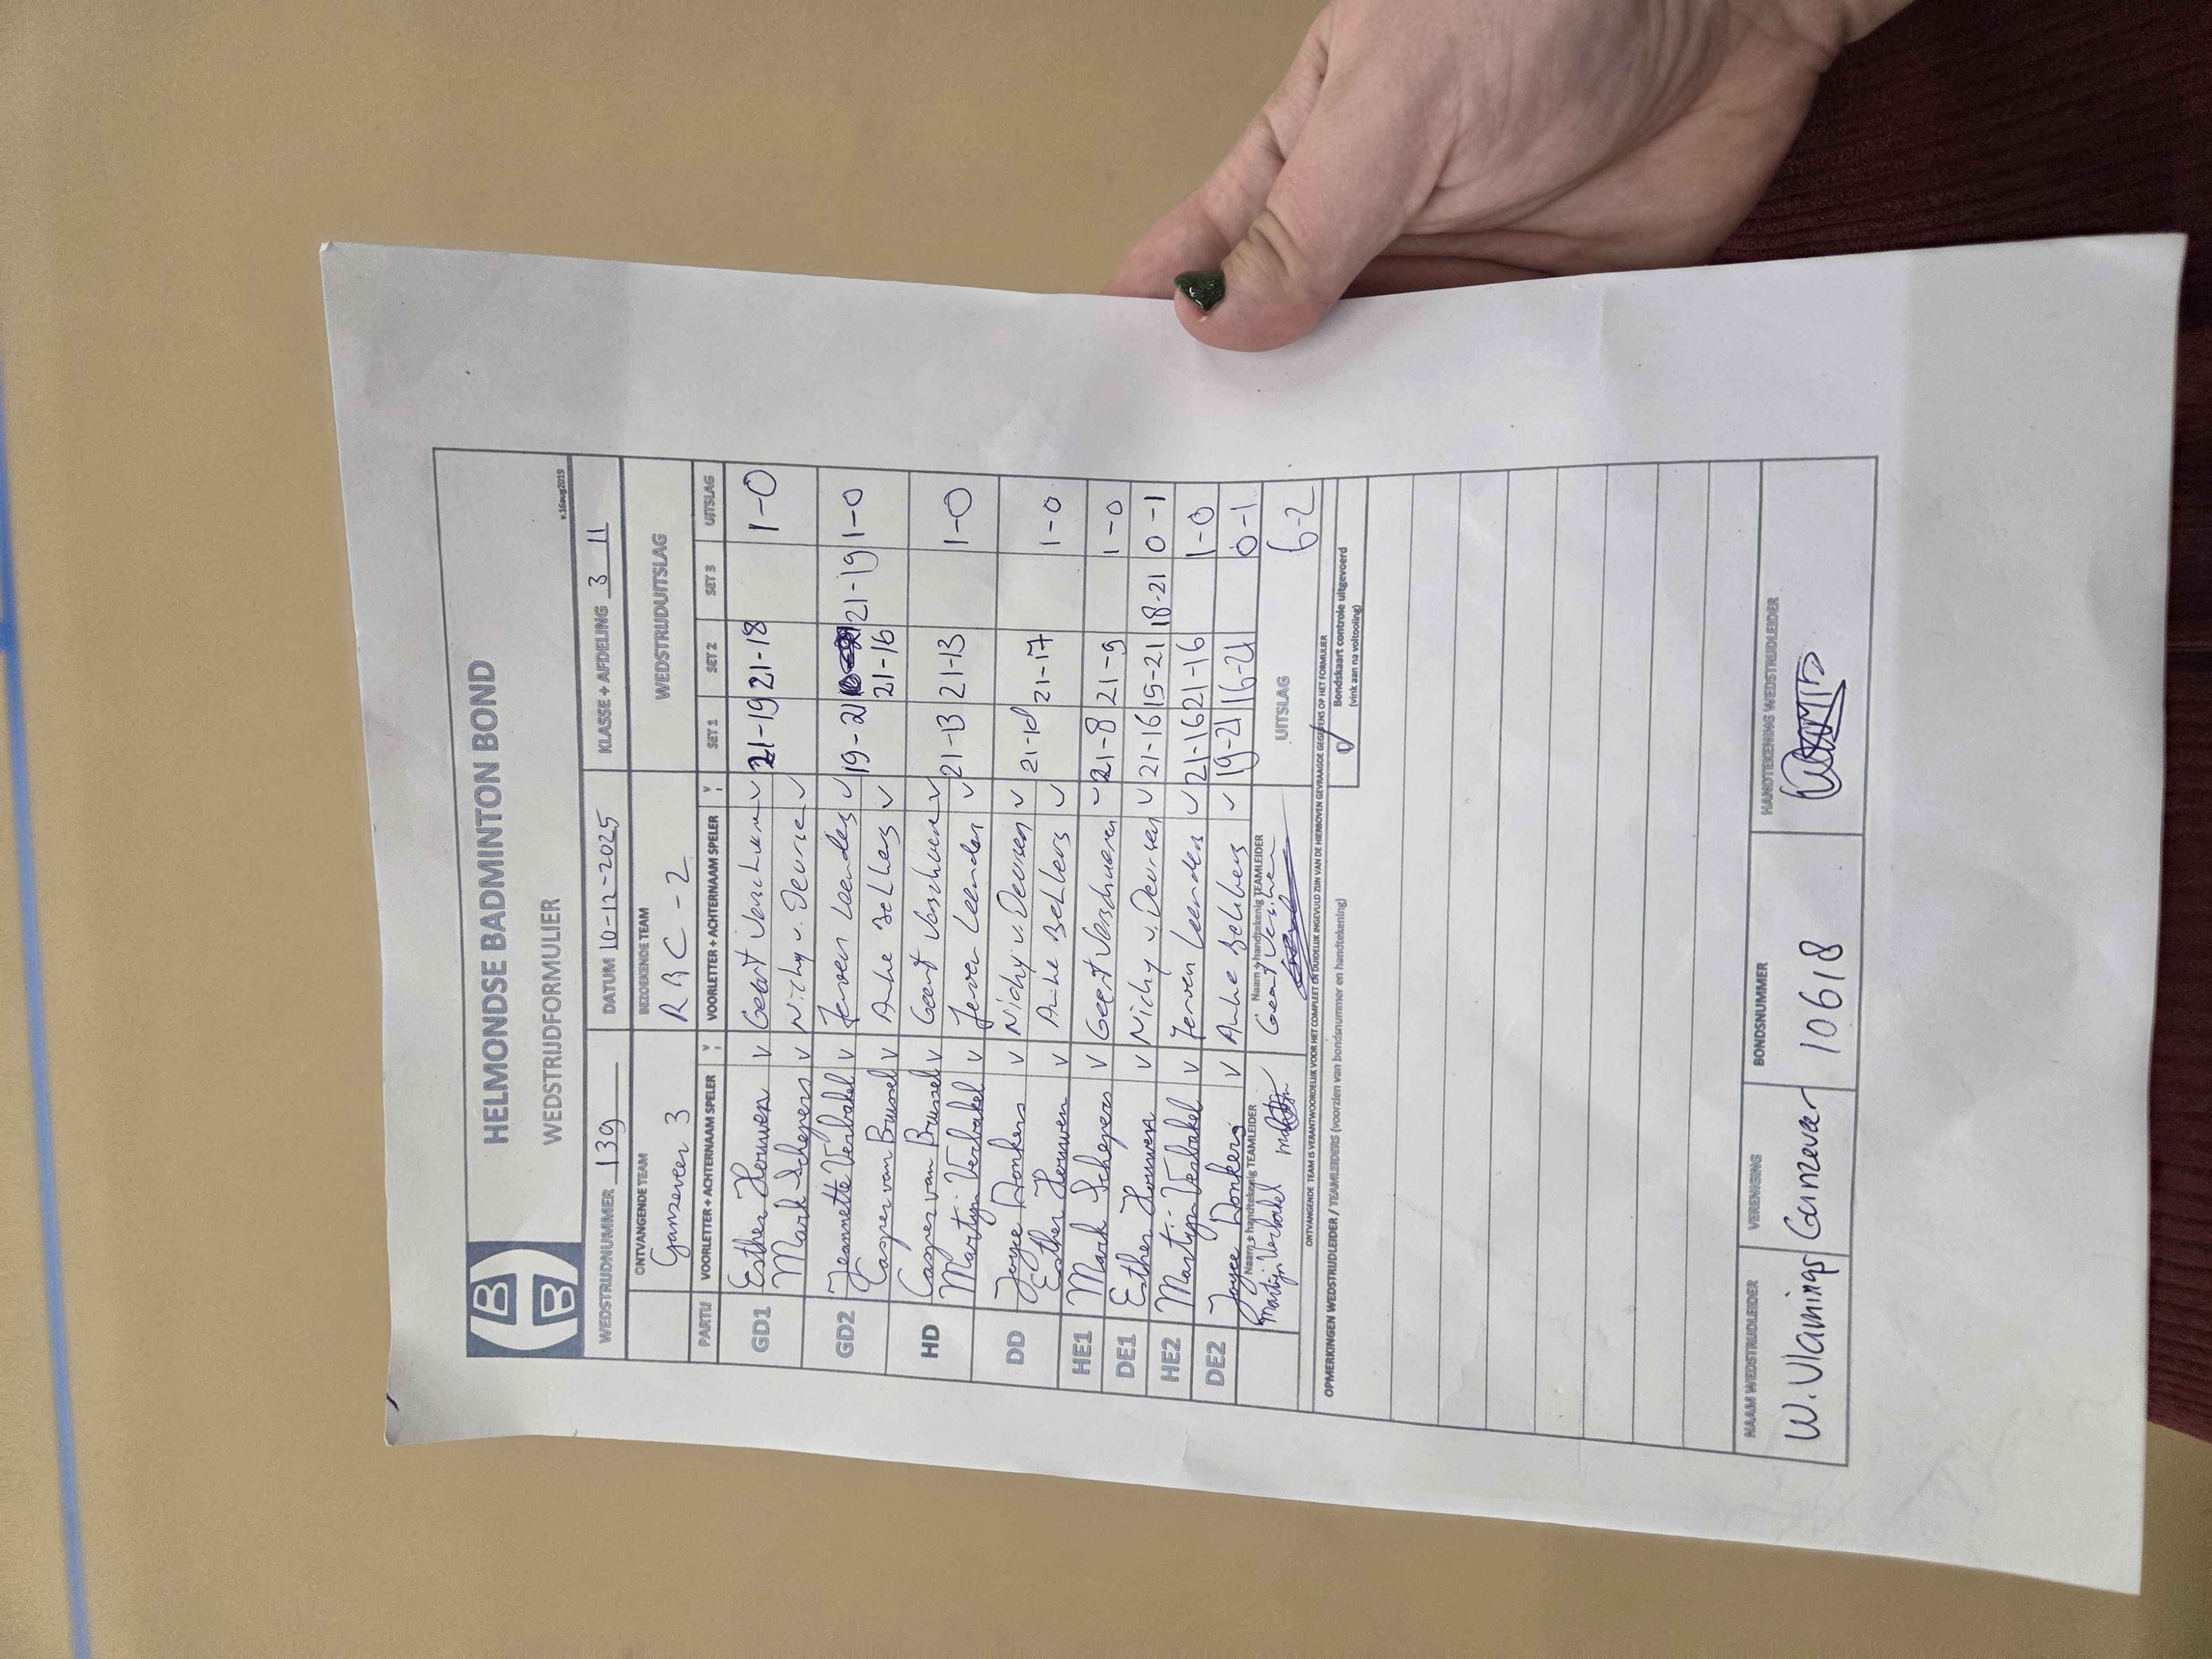 HELMONDSE BADMINTON BOND
WEDSTRIJDFORMULIER
v.16aug2019
WEDSTRIJDNUMMER 139 DATUM 10-12-2025 KLASSE + AFDELING 3 11
ONTVANGENDE TEAM BEZOEKENDE TEAM WEDSTRIJDUITSLAG
Ganzeveer 3 RBC-2
PARTIJ VOORLETTER + ACHTERNAAM SPELER V VOORLETTER + ACHTERNAAM SPELER V SET 1 SET 2 SET 3 UITSLAG
GD1 Esther Houwen V Geert Verschueren V 21-19 21-18 1-0
Mark Schepers V Nichy v. Deursen V
GD2 Jeannette Verbakel V Jeroen Leenders V 19-21 21-19 1-0
Casper van Brussel V Anke Behhers V 21-16
HD Casper van Brussel V Geert Verschueren V 21-13 21-13 1-0
Martijn Verbakel V Jeroen Leenders V
DD Joyce Donkers V Nichy v. Deursen V 21-10 21-17 1-0
Esther Houwen V Anke Behhers V
HE1 Mark Schepers V Geert Verschueren V 21-8 21-9 1-0
DE1 Esther Houwen V Nichy v. Deursen V 21-16 15-21 18-21 0-1
HE2 Martijn Verbakel V Jeroen Leenders V 21-16 21-16 1-0
DE2 Joyce Donkers V Anke Behhers V 19-21 16-21 0-1
Naam + handtekenig TEAMLEIDER Naam + handtekenig TEAMLEIDER UITSLAG 6-2
Martijn Verbakel Geert
ONTVANGENDE TEAM IS VERANTWOORDELIJK VOOR HET COMPLEET EN DUIDELIJK INGEVULD ZIJN VAN DE HIERBOVEN GEVRAAGDE GEGEVENS OP HET FORMULIER
OPMERKINGEN WEDSTRIJDLEIDER / TEAMLEIDERS (voorzien van bondsnummer en handtekening)
Bondskaart controle uitgevoerd
(vink aan na voltooiing)
NAAM WEDSTRIJDLEIDER VERENIGING BONDSNUMMER HANDTEKENING WEDSTRIJDLEIDER
W. Vlamings Ganzeveer 10618